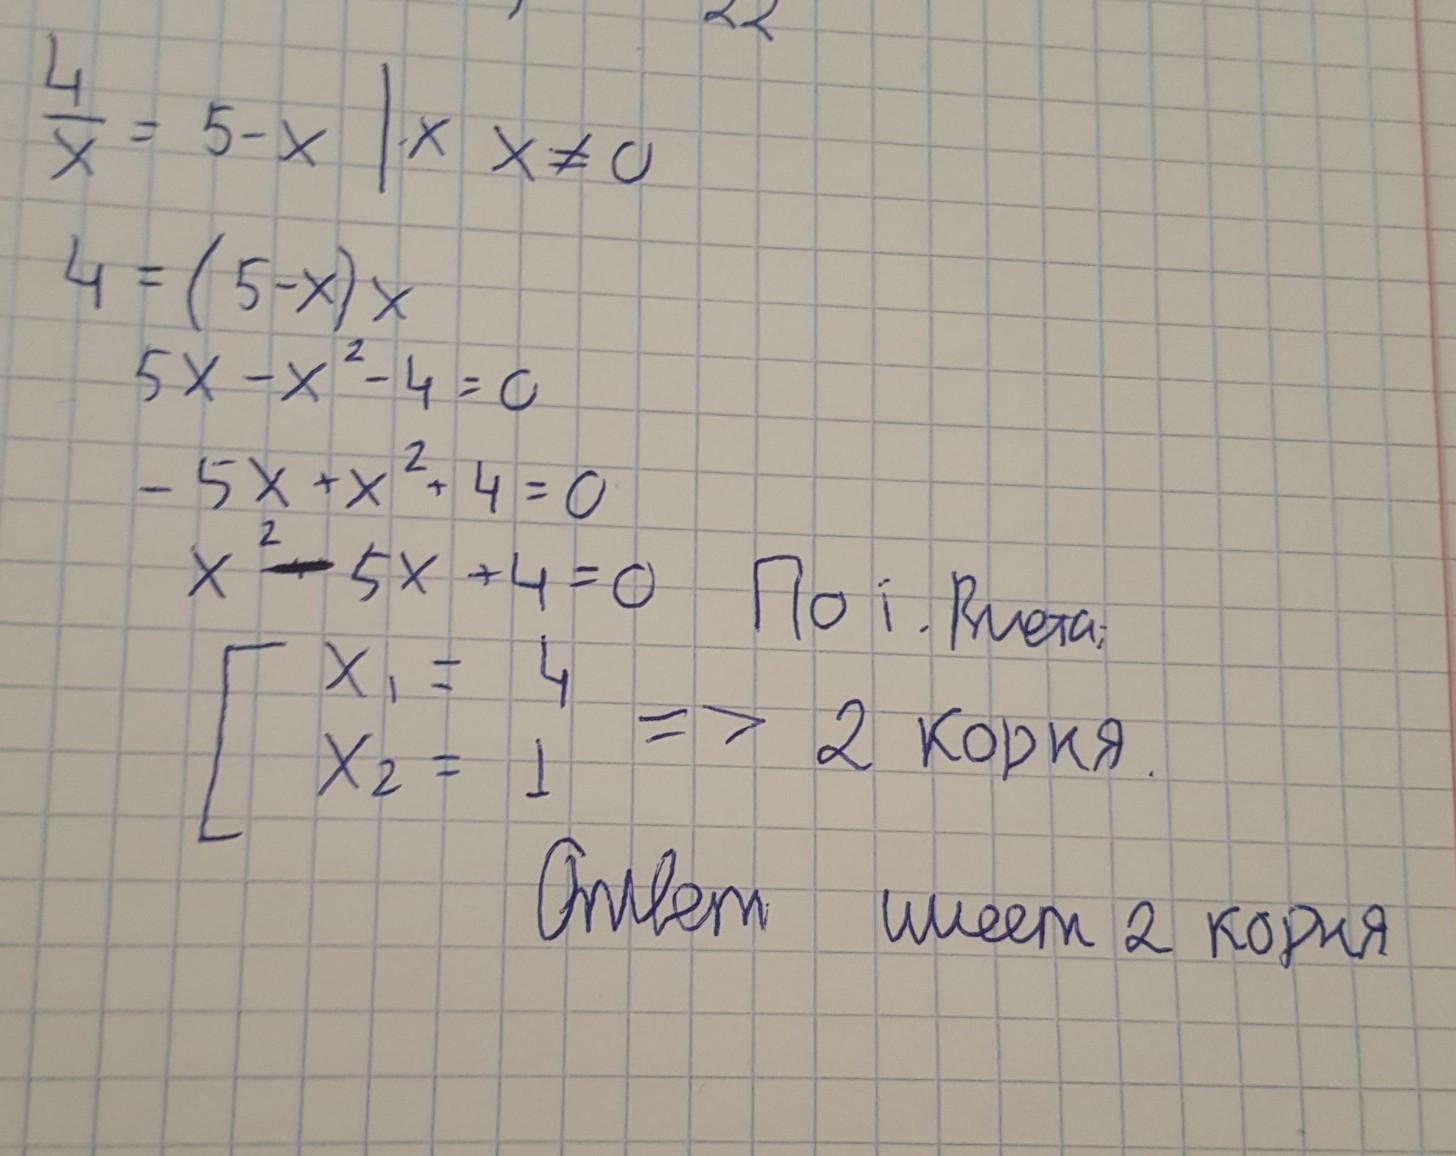 22
4/x = 5-x | ·x x ≠ 0
4 = (5-x)x
5x - x² - 4 = 0
- 5x + x² + 4 = 0
x² - 5x + 4 = 0 По т. Виета:
x₁ = 4
x₂ = 1 => 2 корня.
Ответ имеет 2 корня